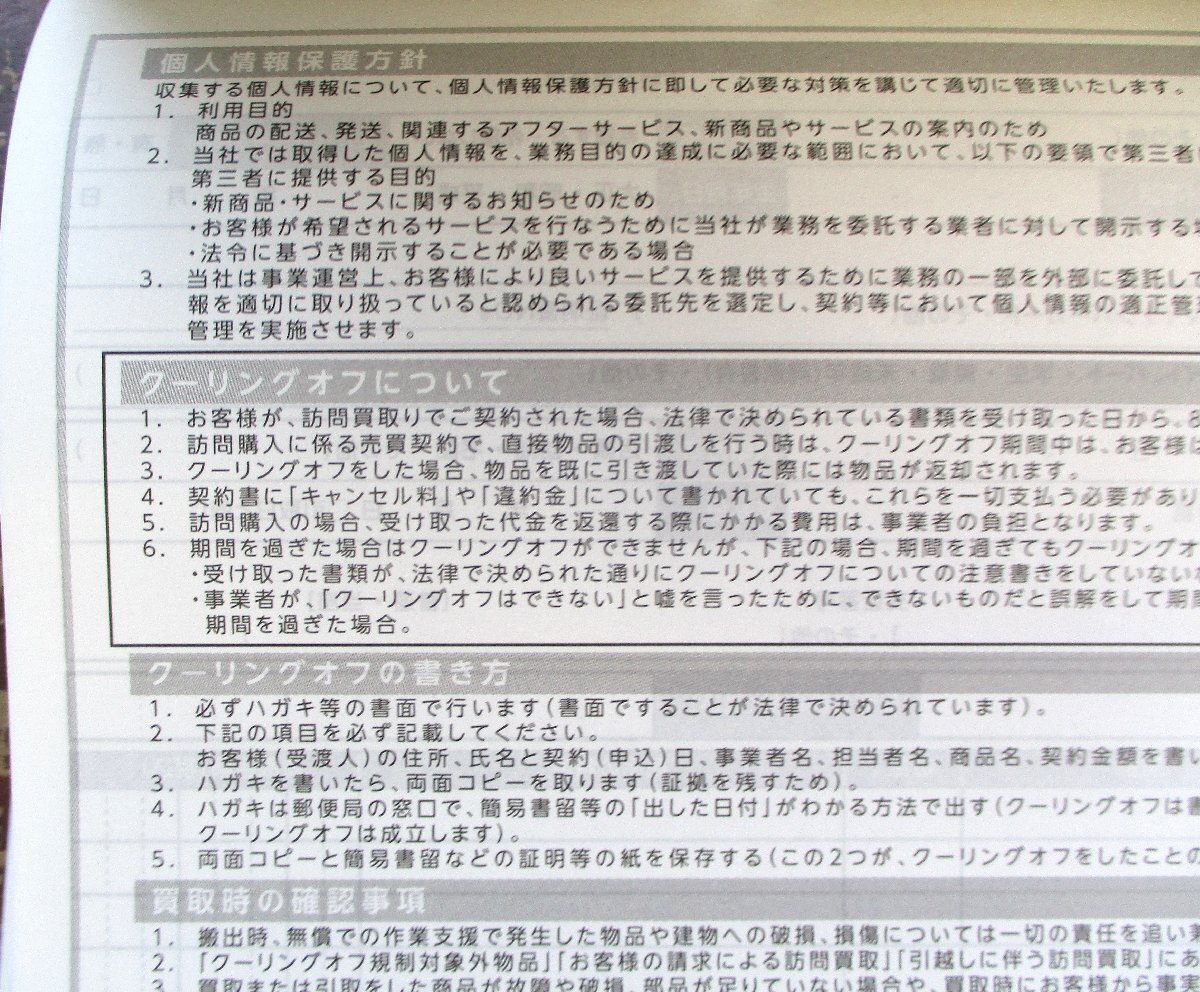 個人情報保護方針
収集する個人情報について、個人情報保護方針に即して必要な対策を講じて適切に管理いたします。
1. 利用目的
商品の配送、発送、関連するアフターサービス、新商品やサービスの案内のため
2. 当社では取得した個人情報を、業務目的の達成に必要な範囲において、以下の要領で第三者
第三者に提供する目的
・新商品・サービスに関するお知らせのため
・お客様が希望されるサービスを行なうために当社が業務を委託する業者に対して開示する
・法令に基づき開示することが必要である場合
3. 当社は事業運営上、お客様により良いサービスを提供するために業務の一部を外部に委託して
報を適切に取り扱っていると認められる委託先を選定し、契約等において個人情報の適正管
管理を実施させます。
クーリングオフについて
1. お客様が、訪問買取りでご契約された場合、法律で決められている書類を受け取った日から、
2. 訪問購入に係る売買契約で、直接物品の引渡しを行う時は、クーリングオフ期間中は、お客様は
3. クーリングオフをした場合、物品を既に引き渡していた際には物品が返却されます。
4. 契約書に「キャンセル料」や「違約金」について書かれていても、これらを一切支払う必要があり
5. 訪問購入の場合、受け取った代金を返還する際にかかる費用は、事業者の負担となります。
6. 期間を過ぎた場合はクーリングオフができませんが、下記の場合、期間を過ぎてもクーリングオ
・受け取った書類が、法律で決められた通りにクーリングオフについての注意書きをしていない
・事業者が、「クーリングオフはできない」と嘘を言ったために、できないものだと誤解をして期間
期間を過ぎた場合。
クーリングオフの書き方
1. 必ずハガキ等の書面で行います(書面ですることが法律で決められています)。
2. 下記の項目を必ず記載してください。
お客様(受渡人)の住所、氏名と契約(申込)日、事業者名、担当者名、商品名、契約金額を書い
3. ハガキを書いたら、両面コピーを取ります(証拠を残すため)。
4. ハガキは郵便局の窓口で、簡易書留等の「出した日付」がわかる方法で出す(クーリングオフは書
クーリングオフは成立します)。
5. 両面コピーと簡易書留などの証明等の紙を保存する(この2つが、クーリングオフをしたことの
買取時の確認事項
1. 搬出時、無償での作業支援で発生した物品や建物への破損、損傷については一切の責任を追い
2. 「クーリングオフ規制対象外物品」「お客様の請求による訪問買取」「引越しに伴う訪問買取」にあ
3. 買取または引取をした商品が故障や破損、部品が足りていない場合や、買取時にお客様から事実